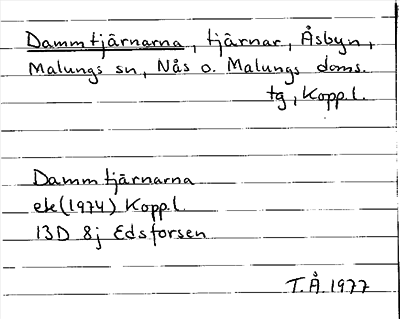 Dammtjärnarna, tjärnar, Åsbyn,
Malungs sn, Nås o. Malungs doms.
tg, Kopp.l.
Dammtjärnarna
ek(1974) Kopp.l.
13D 8j Edsforsen
T.Å.1977